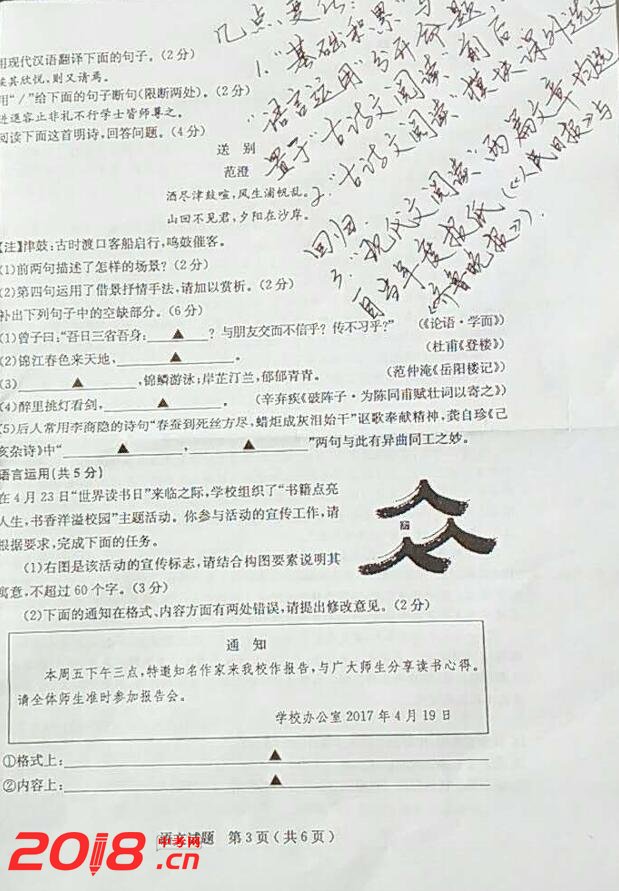 几点变化:
1.“基础积累”与
“语言运用”分开命题,
置于“古诗文阅读”前后
2.“古诗文阅读”模块课外选文
回归.
3.“现代文阅读”两篇文章均选
自当年度报纸(《人民日报》与
《齐鲁晚报》).
用现代汉语翻译下面的句子。(2分)
读其欣悦,则又请焉。
用“/”给下面的句子断句(限断两处)。(2分)
进退容止非礼不行学士皆师尊之。
阅读下面这首明诗,回答问题。(4分)
送 别
范澄
酒尽津鼓喧,风生浦帆乱。
山回不见君,夕阳在沙岸。
【注】津鼓:古时渡口客船启行,鸣鼓催客。
(1)前两句描述了怎样的场景?(2分)
(2)第四句运用了借景抒情手法,请加以赏析。(2分)
补出下列句子中的空缺部分。(6分)
(1)曾子曰:“吾日三省吾身:▲?与朋友交而不信乎?传不习乎?” (《论语·学而》)
(2)锦江春色来天地,▲。 (杜甫《登楼》)
(3)▲,锦鳞游泳;岸芷汀兰,郁郁青青。 (范仲淹《岳阳楼记》)
(4)醉里挑灯看剑,▲。 (辛弃疾《破阵子·为陈同甫赋壮词以寄之》)
(5)后人常用李商隐的诗句“春蚕到死丝方尽,蜡炬成灰泪始干”讴歌奉献精神,龚自珍《己
亥杂诗》中“▲,▲”两句与此有异曲同工之妙。
语言运用(共5分)
在4月23日“世界读书日”来临之际,学校组织了“书籍点亮
人生,书香洋溢校园”主题活动。你参与活动的宣传工作,请
根据要求,完成下面的任务。
(1)右图是该活动的宣传标志,请结合构图要素说明其
寓意,不超过60个字。(3分)
(2)下面的通知在格式、内容方面有两处错误,请提出修改意见。(2分)
通 知
本周五下午三点,特邀知名作家来我校作报告,与广大师生分享读书心得。
请全体师生准时参加报告会。
学校办公室2017年4月19日
①格式上:▲
②内容上:▲
语文试题 第3页(共6页)
2018.中考网.cn